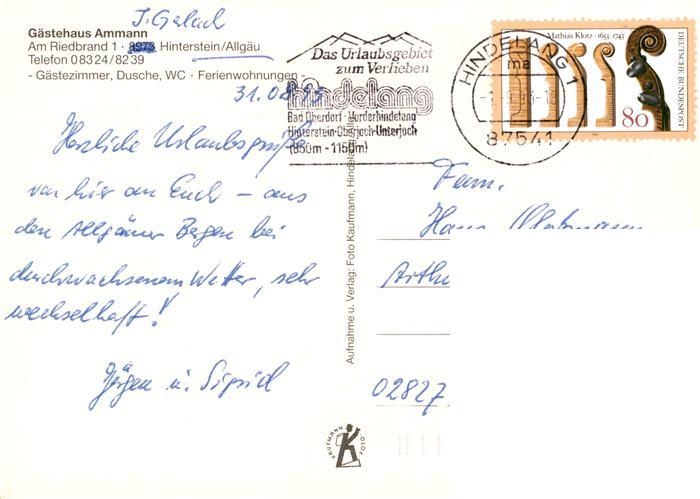 J. Gerlach
Gästehaus Ammann
Am Riedbrand 1 · 8973 Hinterstein/Allgäu
Telefon 08324/8239
- Gästezimmer, Dusche, WC · Ferienwohnungen -
31.08.95
Herzliche Urlaubsgrüße
von hier an Euch – aus
den Allgäuer Bergen bei
durchwachsenem Wetter, sehr
wechselhaft!
Jürgen u. Sigrid
Das Urlaubsgebiet
zum Verlieben
hindelang
Bad Oberdorf - Vorderhindelang
Hinterstein-Oberjoch-Unterjoch
(850m - 1150m)
HINDELANG 1
ma
87541
Mathias Klotz · 1653-1743
DEUTSCHE BUNDESPOST
80
Aufnahme u. Verlag: Foto Kaufmann, Hindelang/Allgäu
Fam.
Hans
02827
KAUFMANN FOTO